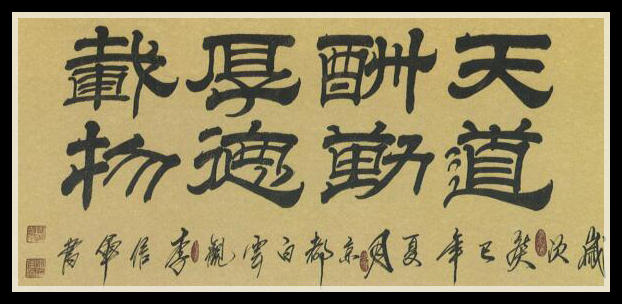 天道
酬勤
厚德
載物
歲次癸巳年夏月京都白雲觀李信軍書